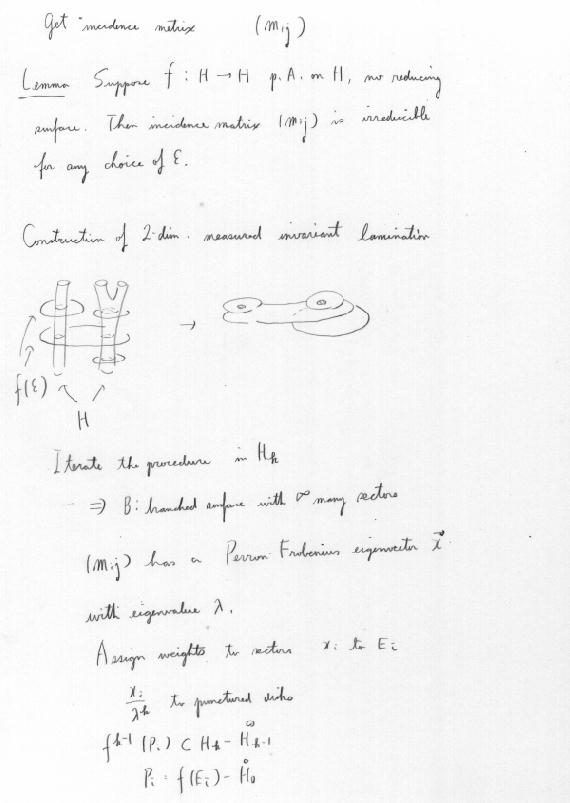 Get incidence matrix (mij)
Lemma Suppose f : H → H p.A. on H, no reducing
surface. Then incidence matrix (mij) is irreducible
for any choice of Ɛ.
Construction of 2-dim. measured invariant lamination
→
f(Ɛ)
H
Iterate the procedure in Hk
⇒ B: branched surface with ∞ many sectors
(mij) has a Perron Frobenius eigenvector x⃗
with eigenvalue λ.
Assign weights to sectors xi to Ei
xi/λ^k to punctured disks
f^k-1 (Pi) ⊂ Hk - H̊k-1
Pi = f(Ei) - H̊0